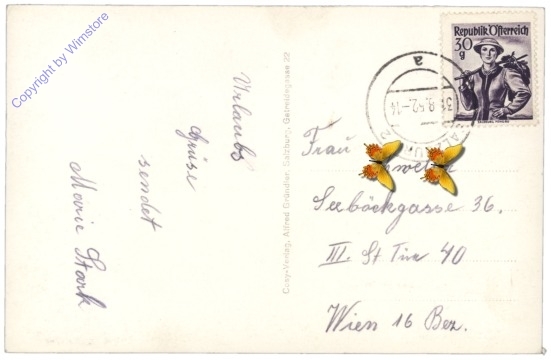 Copyright by Wimstore
Urlaubs
grüse
sendet
Marie Stark
Cosy-Verlag, Alfred Gründler, Salzburg, Getreidegasse 22
Republik Österreich
30
g
a
31.8.52-14
Frau
Seeböckgasse 36.
III. St Türe 40
Wien 16 Bez.